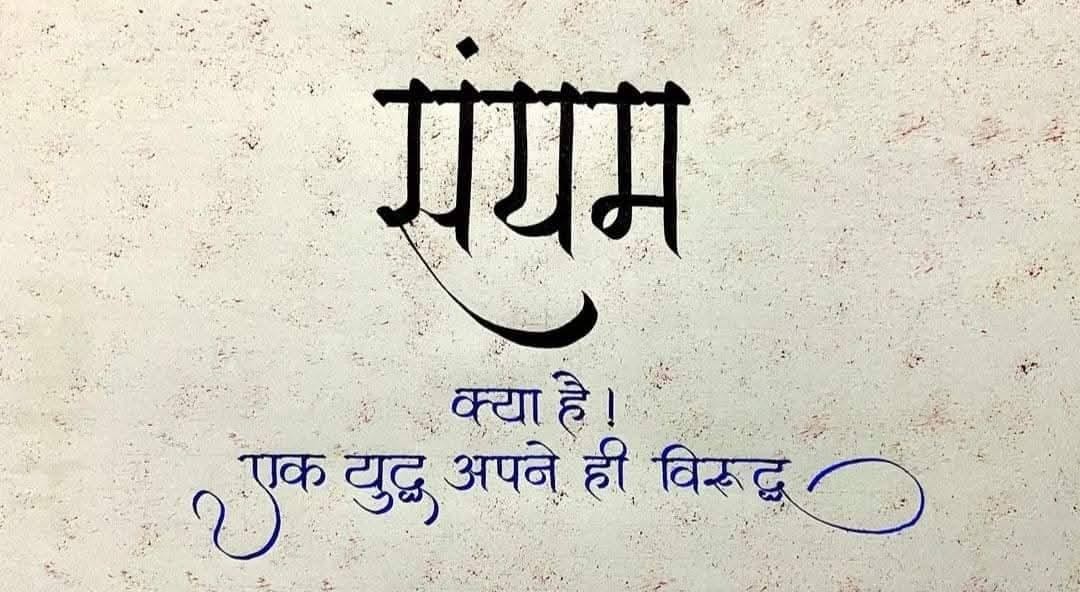 संयम
क्या है !
एक युद्ध अपने ही विरूद्ध